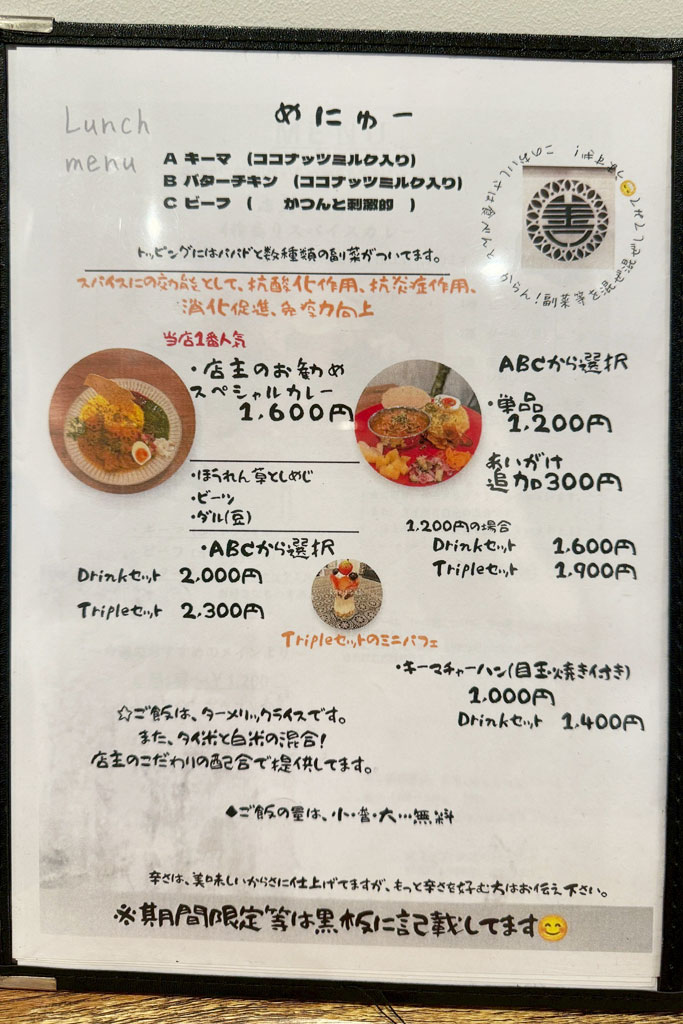 Lunch
menu
めにゅー
A キーマ （ココナッツミルク入り）
B バターチキン （ココナッツミルク入り）
C ビーフ （ がつんと刺激的 ）
トッピングにはパパドと数種類の副菜がついてます。
スパイスにの効能として、抗酸化作用、抗炎症作用、
消化促進、免疫力向上
当店1番人気
・店主のお勧め
スペシャルカレー
1,600円
・ほうれん草としめじ
・ビーツ
・ダル(豆)
・ABCから選択
Drinkセット 2,000円
Tripleセット 2,300円
ABCから選択
・単品
1,200円
あいがけ
追加300円
1,200円の場合
Drinkセット 1,600円
Tripleセット 1,900円
Tripleセットのミニパフェ
・キーマチャーハン(目玉焼き付き)
1,000円
Drinkセット 1,400円
☆ご飯は、ターメリックライスです。
また、タイ米と白米の混合!
店主のこだわりの配合で提供してます。
◆ご飯の量は、小・普・大…無料
辛さは、美味しいからさに仕上げてますが、もっと辛さを好む方はお伝え下さい。
※期間限定等は黒板に記載してます😊